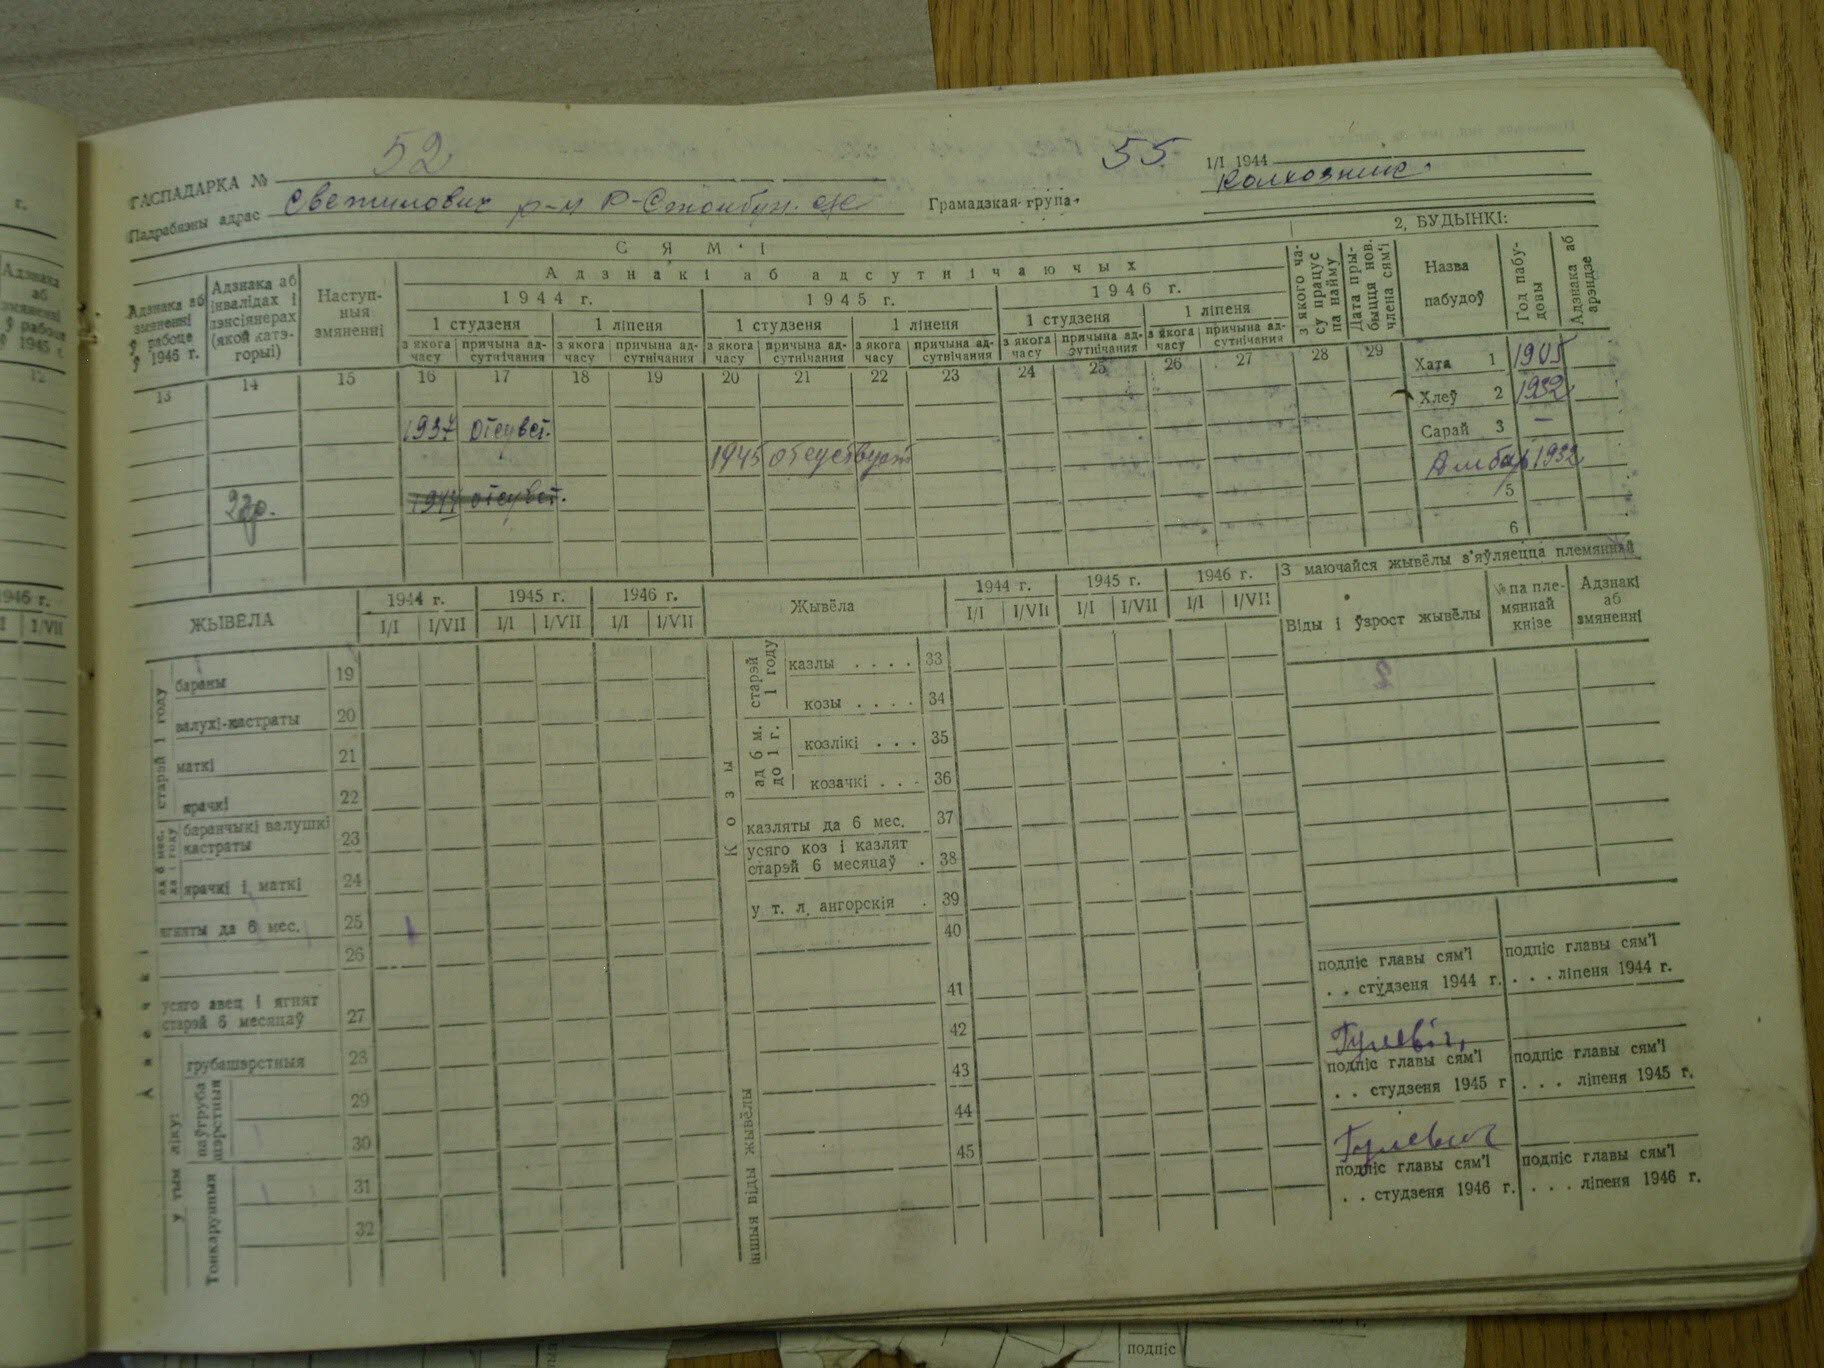 52
55
ГАСПАДАРКА №
1/I 1944
колхозник.
Падрабязны адрас Светилович р-н
Грамадзкая група
СЯМ'І
2, БУДЫНКІ:
Адзнака аб змяненні ў рабоце ў 1946 г.
Адзнака аб інвалідах і пэнсіянерах (якой катэгорыі)
Наступныя змяненні
Адзнакі аб адсутнічаючых
1944 г. 1945 г. 1946 г.
1 студзеня 1 ліпеня 1 студзеня 1 ліпеня 1 студзеня 1 ліпеня
з якога часу причына адсутнічания з якога часу причына адсутнічания з якога часу причына адсутнічания з якога часу причына адсутнічания з якога часу причына адсутнічания з якога часу причына адсутнічания
з якого часу працус па найму
Дата прыбыцця нов. члена сям'і
Назва пабудоў
Год пабудовы
Адзнака аб арэндзе
13 14 15 16 17 18 19 20 21 22 23 24 25 26 27 28 29
Хата 1 1905
Хлеў 2 1932
1937 отсувст.
Сарай 3 –
1945 отсутствует
Амбар 1932
2 гр. 1944 отсувст.
5
6
ЖЫВЁЛА
1944 г. 1945 г. 1946 г.
I/I I/VII I/I I/VII I/I I/VII
Жывёла
1944 г. 1945 г. 1946 г.
I/I I/VII I/I I/VII I/I I/VII
З маючайся жывёлы з'яўляецца племянной
Віды і ўзрост жывёлы
№ па племяннай кнізе
Адзнакі аб змяненні
Авечкі
старэй 1 году
бараны 19
валухі-кастраты 20
маткі 21
ярачкі 22
ад 6 мес. да 1 году
баранчыкі валушкі кастраты 23
ярачкі і маткі 24
ягняты да 6 мес. 25 1
26
усяго авец і ягнят старэй 6 месяцаў 27
у тым ліку:
грубашэрстныя 28
паўгрубашэрстныя
29
30
Тонкарунныя
31
32
Козы
старэй 1 году
казлы . . . . 33
козы . . . . 34
ад 6 м. до 1 г.
козлікі . . . 35
козачкі . . . 36
казляты да 6 мес. 37
усяго коз і казлят старэй 6 месяцаў . 38
у т. л. ангорскія . 39
40
іншыя віды жывёлы
41
42
43
44
45
подпіс главы сям'і . . студзеня 1944 г.
подпіс главы сям'і . . . ліпеня 1944 г.
Гулевіч
подпіс главы сям'і . . студзеня 1945 г
подпіс главы сям'і . . . ліпеня 1945 г.
Гулевич
подпіс главы сям'і . . студзеня 1946 г.
подпіс главы сям'і . . . ліпеня 1946 г.
подпіс